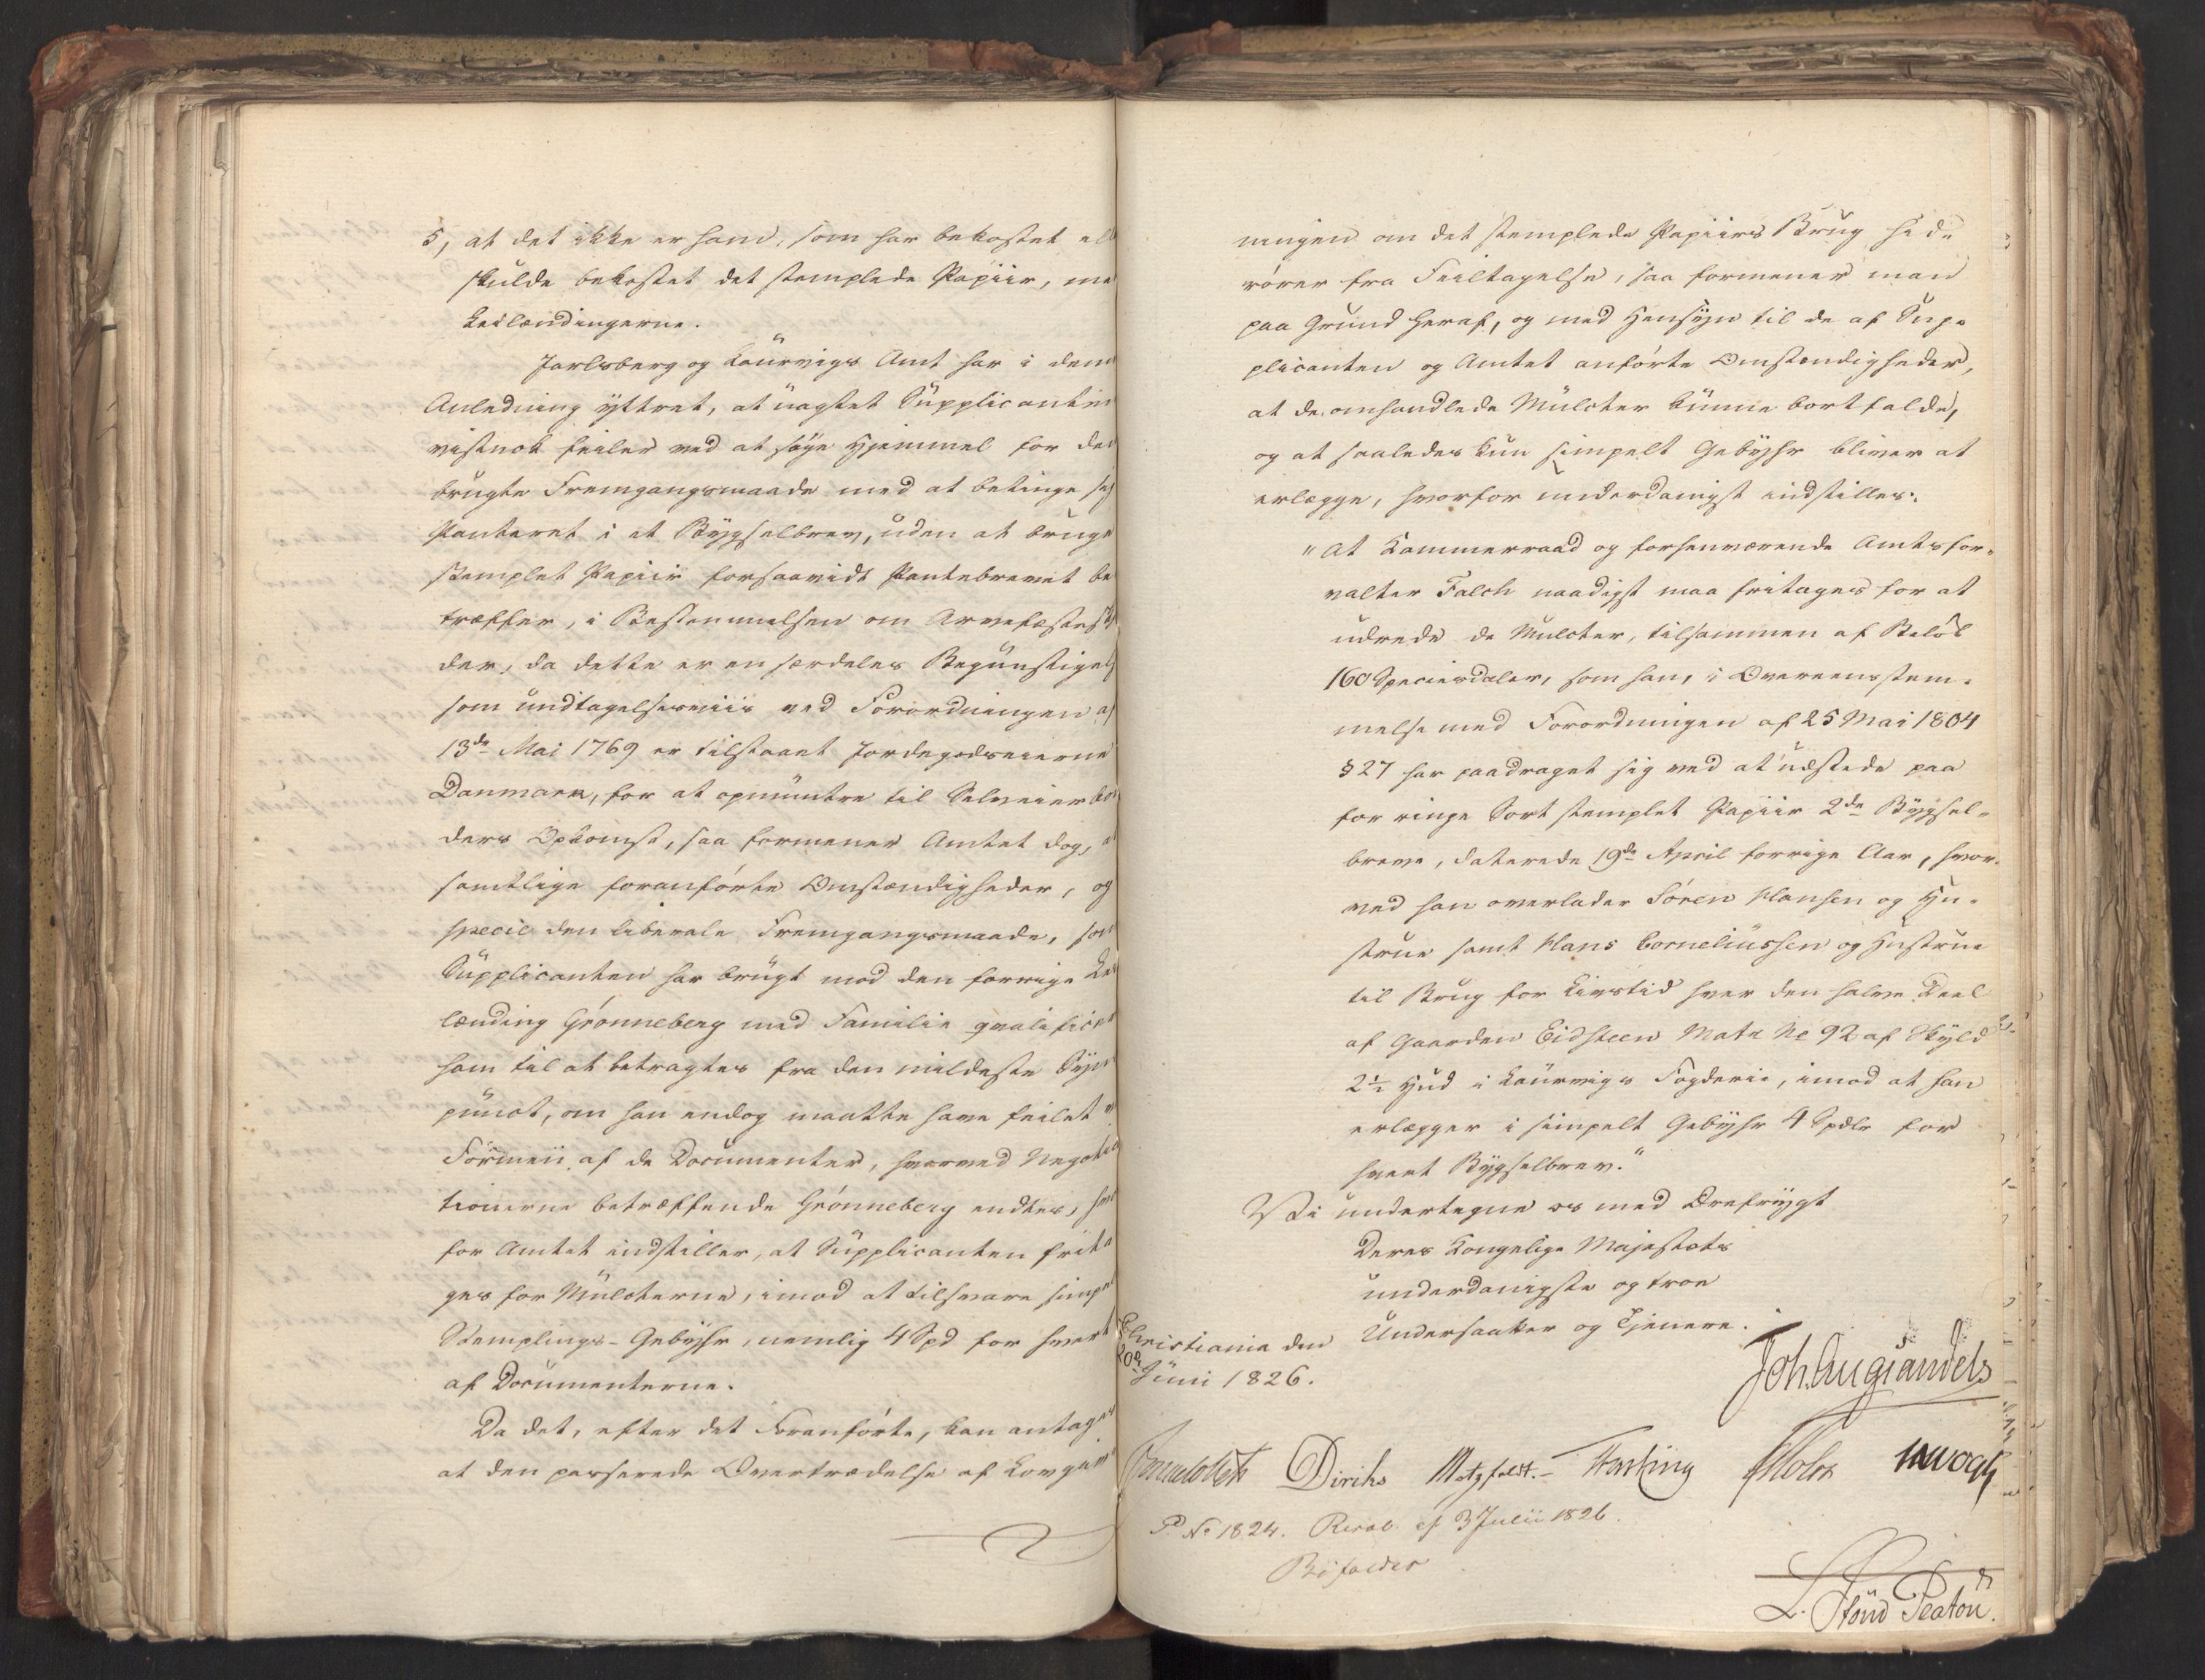 5, at det ikke er ham, som har bekostet ell
skulde bekostet det stemplede Papiir, me
Leilændingerne.
Jarlsberg og Laurvigs Amt har i den
Anledning yttret, at uagtet Supplicanten
vistnok feiler ved at søge Hjemmel for den
brugte Fremgangsmaade med at betinge sig
Panteret i et Bygselbrev, uden at bruge
stemplet Papiir forsaavidt Pantebrevet be
træffer, i Bestemmelsen om Arvefæstes
der, da dette er en særdeles Begunstigels
som undtagelsesviis ved Forordningen af
13de Mai 1769 er tilstaaet Jordegodseierne
Danmark, for at opmuntre til Selveierbøn
ders Opkomst, saa formener Amtet dog, at
samtlige foranførte Omstændigheder, og
speciel den liberale Fremgangsmaade, som
Supplicanten har brugt mod den forrige Lei
lænding Grønneberg med Familie qvalificer
ham til at betragtes fra den mildeste Syns
punct, om han endog maatte have feilet i
Formen af de Documenter, hvorved Negotia
tionerne betræffende Grønneberg endtes, hvor
for Amtet indstiller, at Supplicanten frita
ges for Mulcterne, imod at tilsvare simpel
Stemplings-Gebyhr, nemlig 4 Spd for hvert
af Documenterne.
Da det, efter det Foranførte, kan antages
at den passerede Overtrædelse af Lovgiv
ningen om det stemplede Papiirs Brug hid-
rører fra Feiltagelse, saa formener man
paa Grund heraf, og med Hensyn til de af Sup-
plicanten og Amtet anførte Omstændigheder,
at de omhandlede Mulcter kunne bortfalde,
og at saaledes kun simpelt Gebyhr bliver at
erlægge, hvorfor underdanigst indstilles:
"At Kammerraad og forhenværende Amtsfor-
valter Falch naadigst maa fritages for at
udrede de Mulcter, tilsammen af Beløb
160 Speciesdaler, som han, i Overeensstem-
melse med Forordningen af 25 Mai 1804
§ 27 har paadraget sig ved at udstede paa
for ringe Sort stemplet Papiir 2de Bygsel-
breve, daterede 19de April forrige Aar, hvor-
ved han overlader Søren Hansen og Hu-
strue samt Hans Corneliussen og Hustrue
til Brug for Livstid hver den halve Deel
af Gaarden Eidsteen Matr No 92 af Skyld
2½ Hud i Laurvigs Fogderie, imod at han
erlægger i simpelt Gebyhr 4 Spdlr for
hvert Bygselbrev."
Vi undertegne os med Ærefrygt
Deres Kongelige Majestæts
underdanigste og troe
Undersaatter og Tjenere.
Christiania den
20de Juni 1826.
Joh. Aug Sandels
Diriks Motzfeldt. Fasting Holst
P. No 1824. Resol. af 3 Julii 1826.
Bifaldes